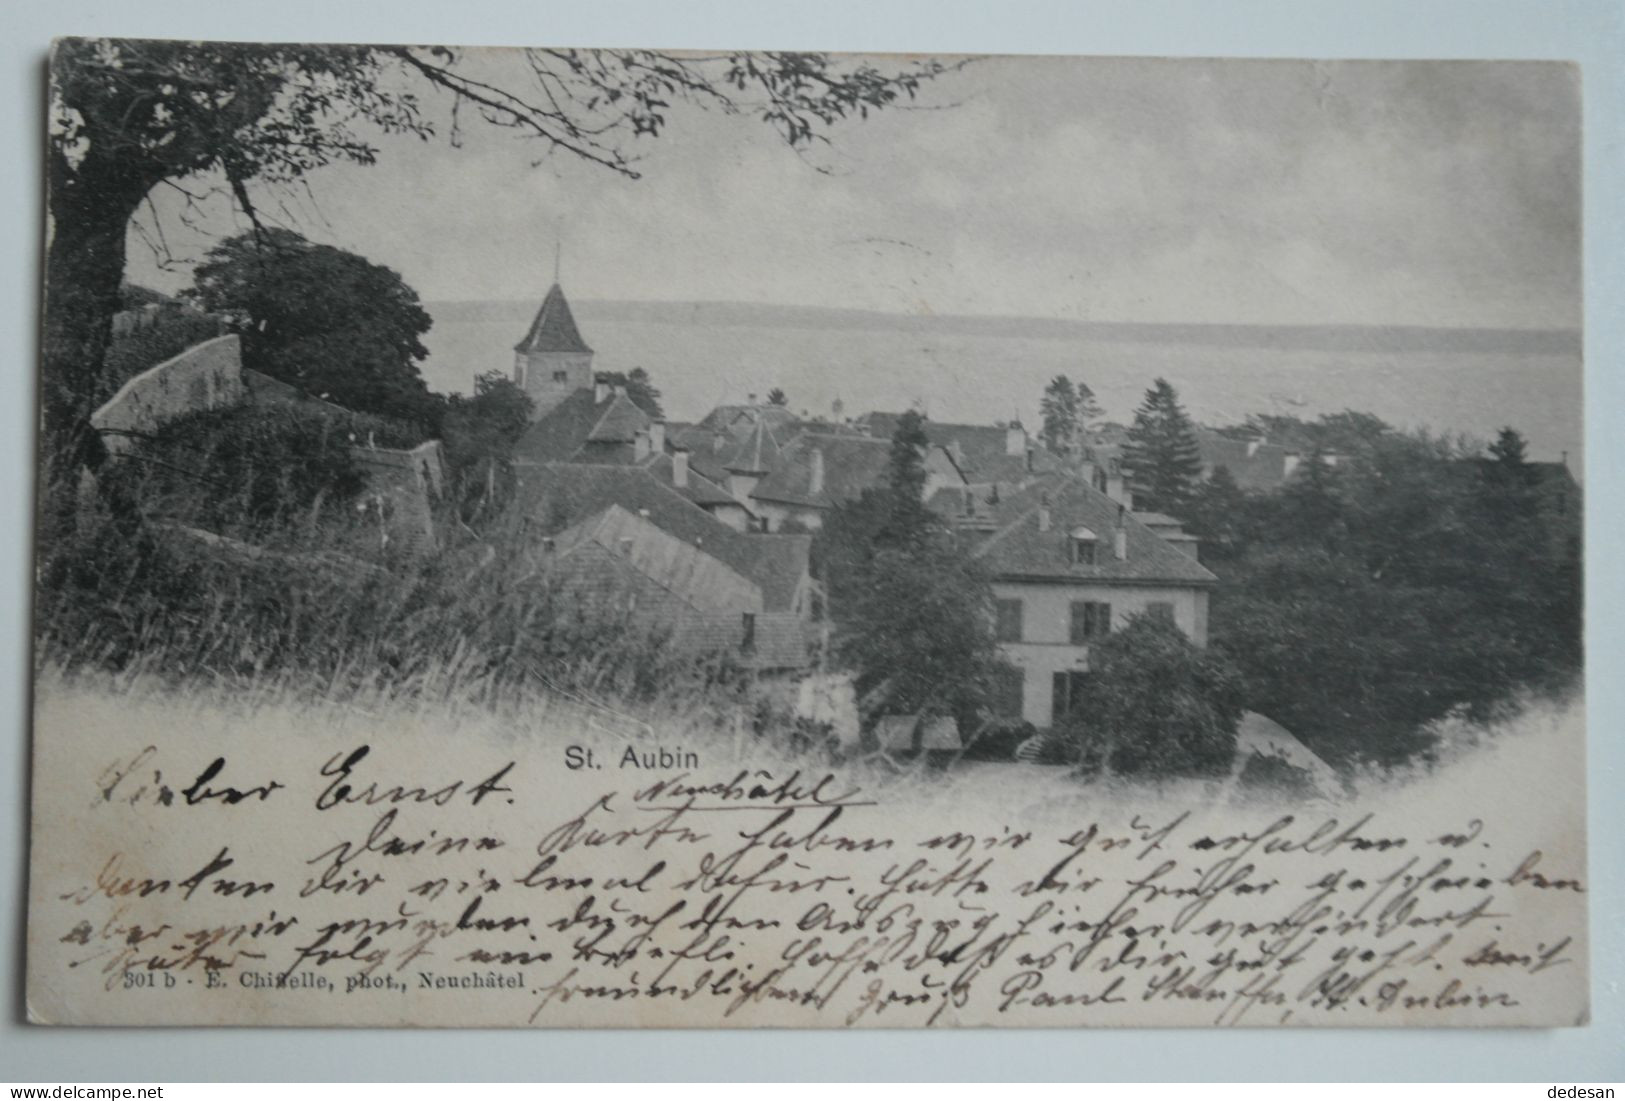 St. Aubin
Neuchâtel
Lieber Ernst.
Deine Karte haben wir gut erhalten u.
danken dir vielmal dafür. Hätte dir früher geschrieben
aber wir wurden durch den Auszug hieher verhindert.
Später folgt ein Briefli. Hoffe daß es dir gut geht. Mit
freundlichem Gruß Paul Stauffer, St. Aubin
301 b - E. Chiffelle, phot., Neuchâtel
delcampe.net
dedesan